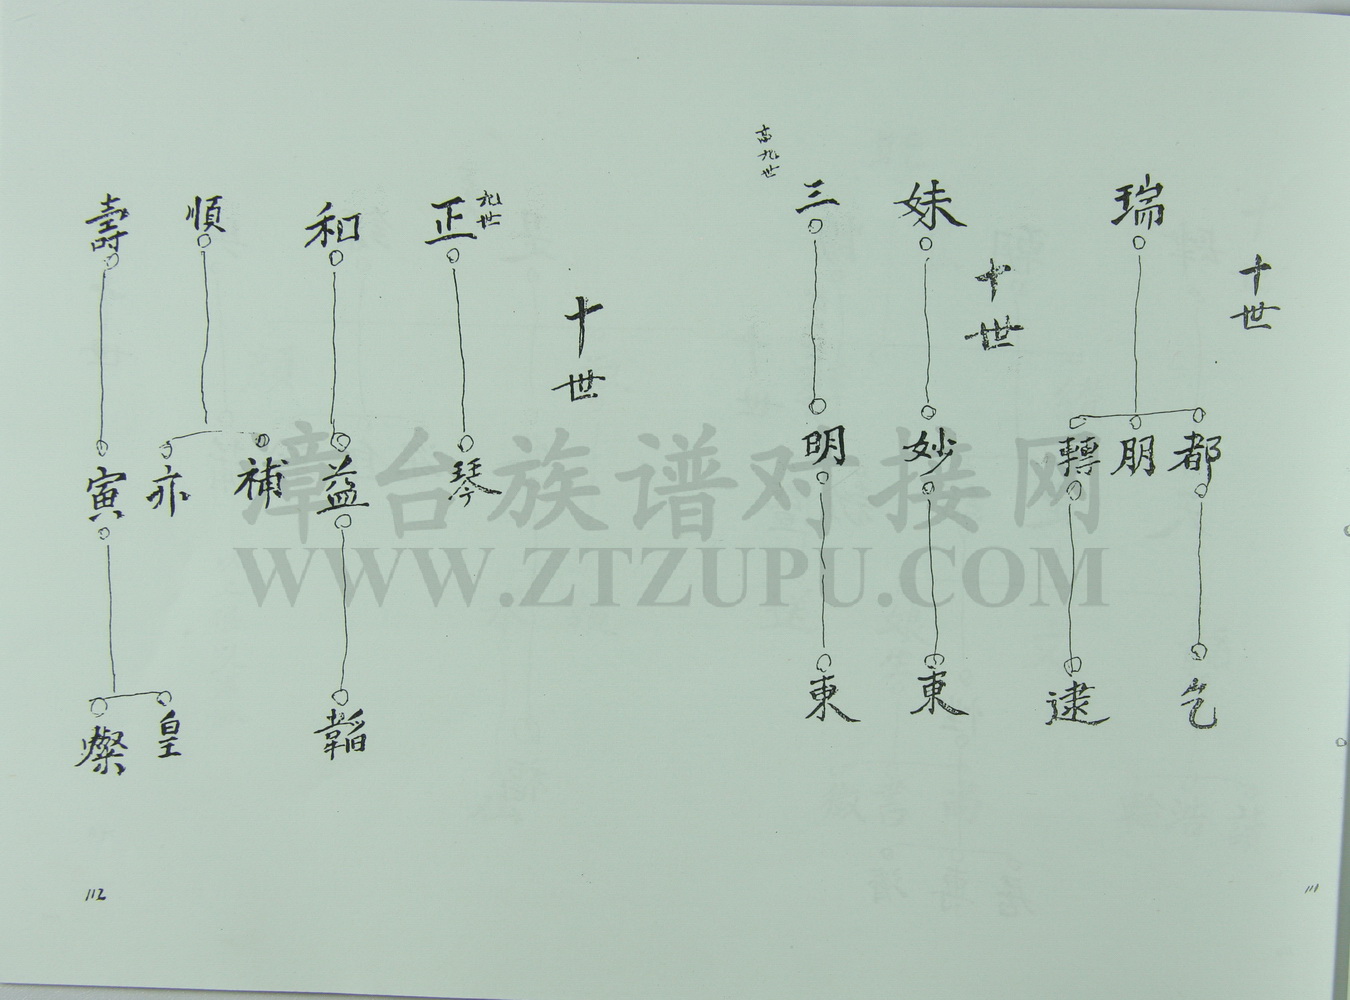 十世
瑞
都
朋
轉
乞
逮
十世
妹
妙
東
三
高九世
明
東
十世
正
九世
琴
和
益
韜
順
補
亦
壽
寅
皇
燦
111
112
漳台族谱对接网
WWW.ZTZUPU.COM